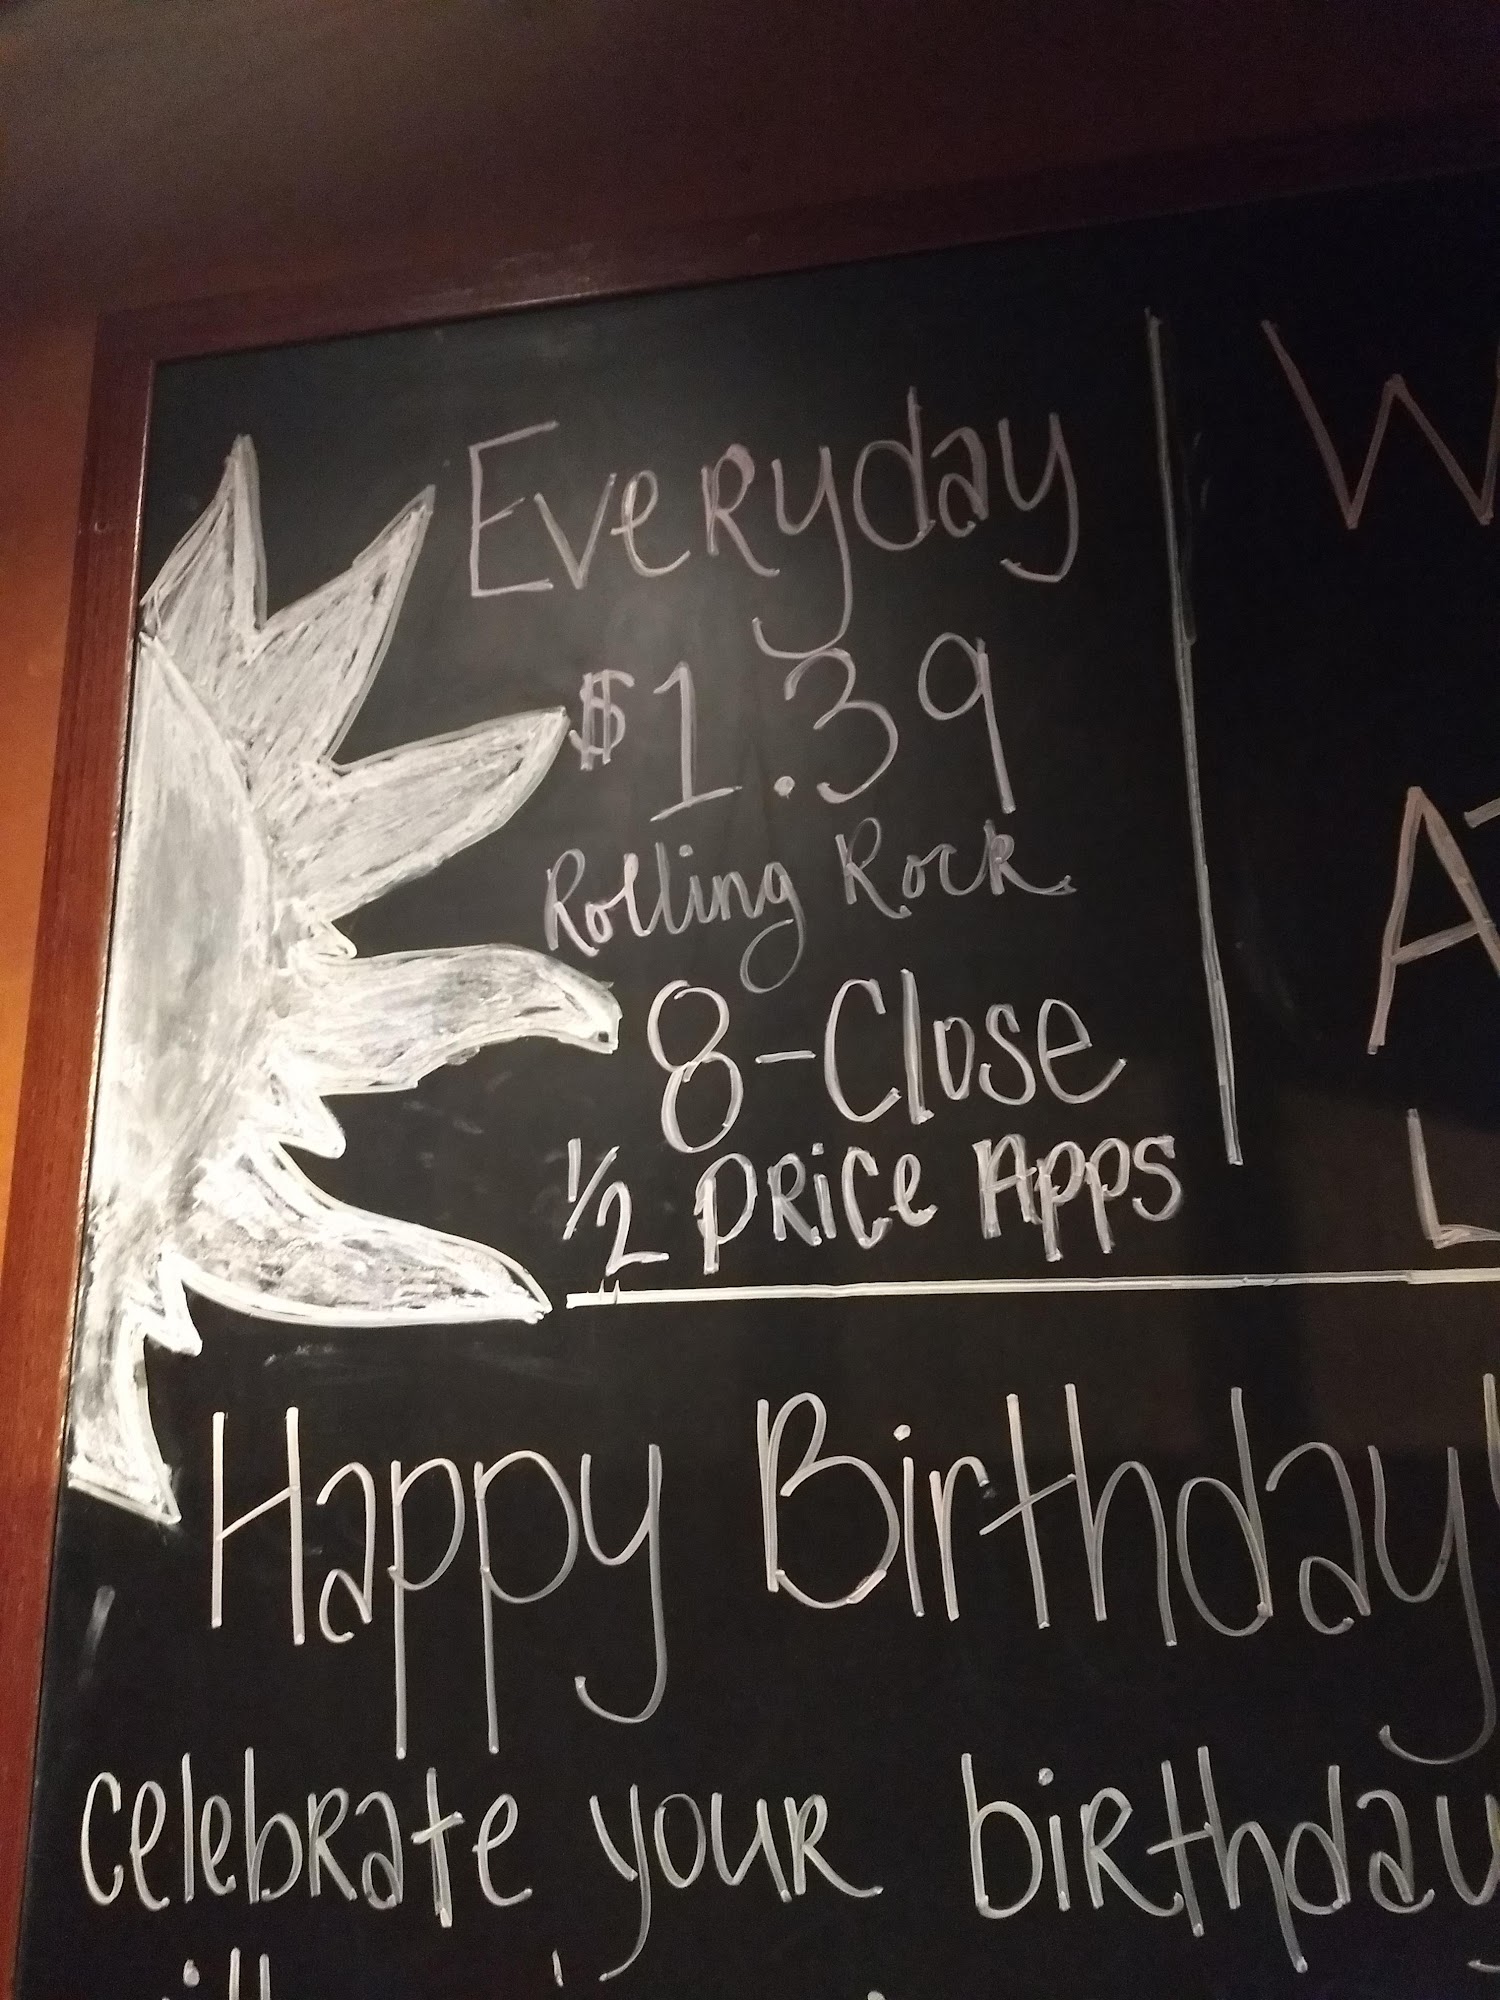 Everyday
$1.39
Rolling Rock
8-Close
1/2 price Apps
Happy Birthday
celebrate your birthday